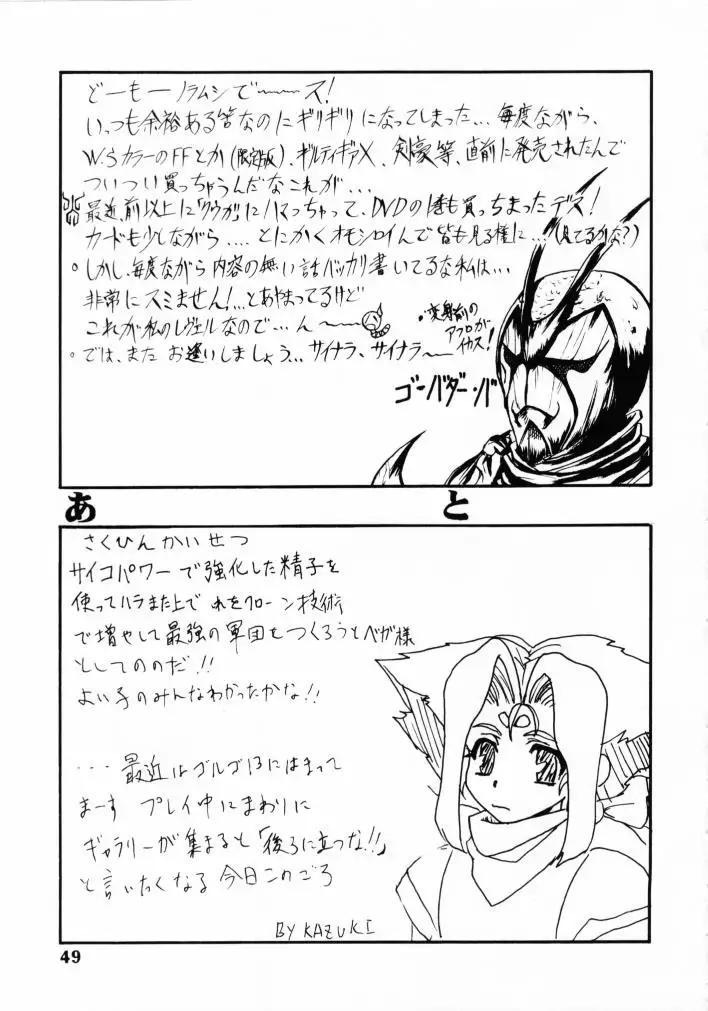 どーもーノラムシで~~~ス!
いっつも余裕ある筈なのにギリギリになってしまった…毎度ながら、
W.SカラーのFFとか(限定版)、ギルティギアX、剣豪等、直前に発売されたんで
ついつい買っちゃうんだなこれが...
最近、前以上に「クウガ」にハマっちゃって、DVDの1巻も買っちまったデス!
カードも少しながら....とにかくオモシロイんで皆も見る様に...(見てるかな?)
。しかし、毎度ながら内容の無い話バッカリ書いてるな私は...
非常にスミません!...とあやまってるけど
これが私のレヴェルなので...ん~~
。では、また お逢いしましょう...サイナラ、サイナラ~
・変身前の
アフロが
イカス!
ゴ・バダー・バ
あ
と
さくひんかいせつ
サイコパワーで強化した精子を
使ってハラまた上で れをクローン技術
で増やして最強の軍団をつくろうとベガ様
としてのだ!!
よい子のみんなわかったかな!!
...最近はゴルゴ13にはまって
まーす プレイ中にまわりに
ギャラリーが集まると「後ろに立つな!!」
と言いたくなる今日このごろ
BY KAZUKI
49